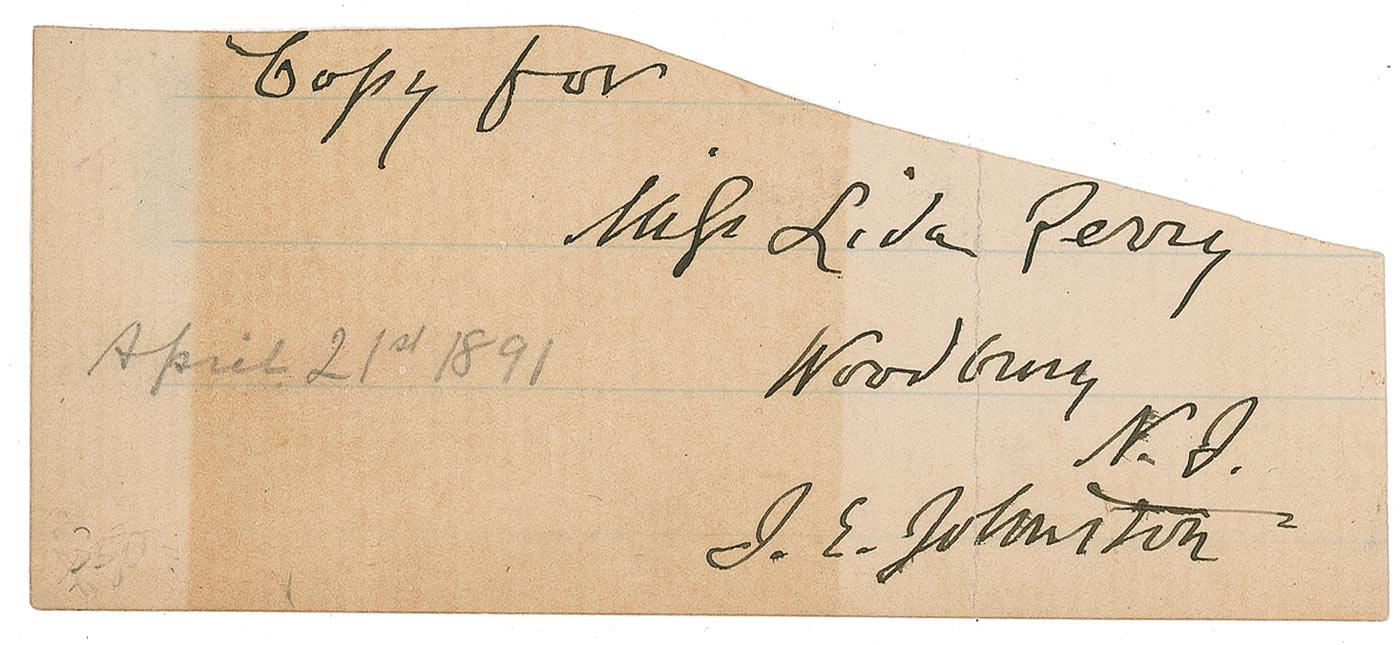 Copy for
Miss Lida Perry
April 21st 1891
Woodbury
N. J.
J. E. Johnston